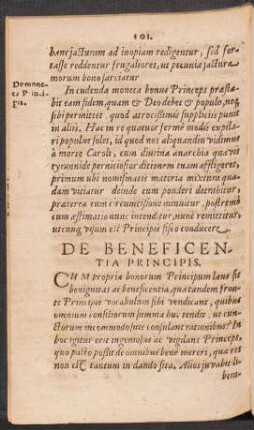 101.
hanc jacturam ad inopiam redigentur, sed for-
tasse reddentur frugaliores, ut pecuniæ jactura
morum bono sarciatur
Demone-
ta Princi-
pis.
In cudenda moneta bonus Princeps præsta-
bit eam fidem, quam & Deo debet & populo, neq;
sibi permittet, quod atrocissimis suppliciis punit
in aliis. Hac in re quatuor fermè modis expila-
ri populus solet, id quod nos aliquandiu vidimus
à morte Caroli, cum diutina anarchia quavis
tyrannide perniciosior ditionem tuam affligeret,
primum ubi nomismatis materia mixtura qua-
dam vitiatur deinde cum ponderi detrahitur,
præterea cum circumcisione minuitur, postremò
cum æstimatio nunc intenditur, nunc remittitur,
utcunq; visum est Principis fisco conducere.
DE BENEFICEN-
TIA PRINCIPIS.
CUM propria bonorum Principum laus sit
benignitas ac beneficentia, qua tandem fron-
te Principis vocabulum sibi vendicant, quibus
omnium consiliorum summa huc tendit, ut cun-
ctorum incommodo suis consulant rationibus? In
hoc igitur erit ingeniosus ac vigilans Princeps,
quo pacto possit de omnibus bene mereri, qua res
non est tantum in dando sita. Alios juvabit li-
bera-